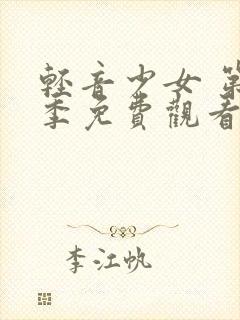 輕音少女 第
季免費觀看
李江帆